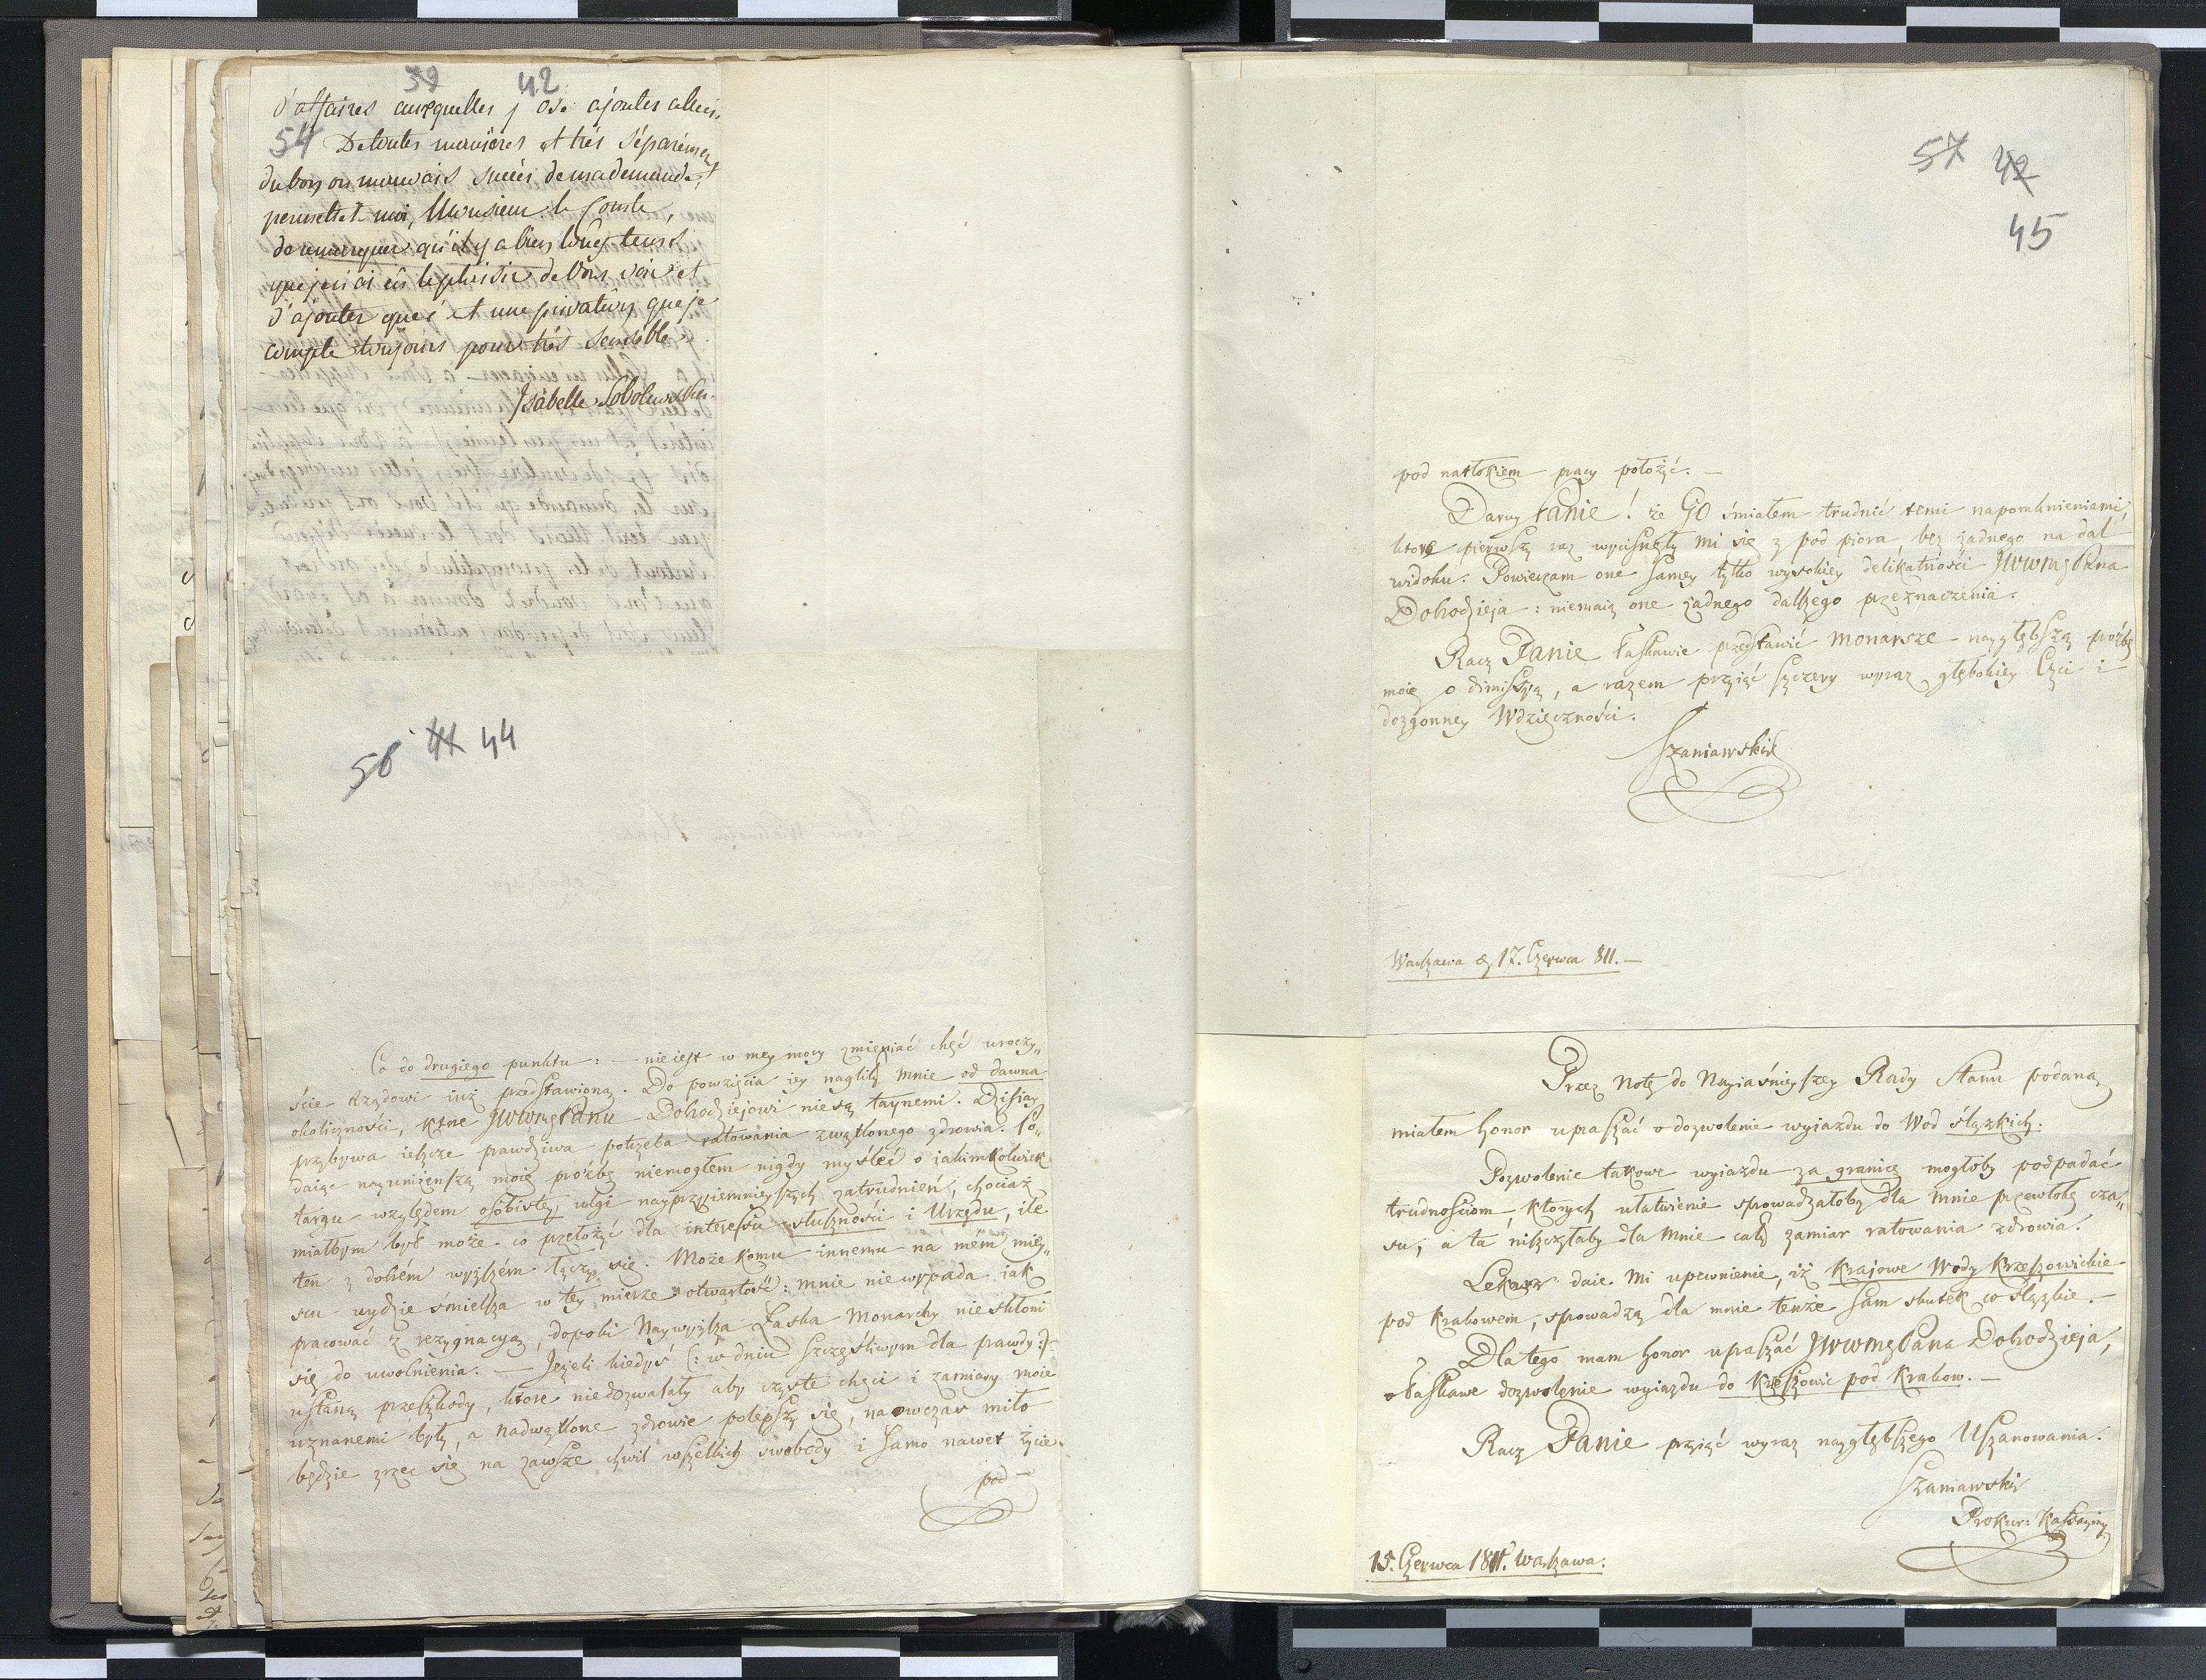 39 42
d'affaires auxquelles j'ose ajouter celleci.
54 De toutes manières et très séparément
du bon ou mauvais succès de ma demande,
permettez moi, Monsieur le Comte,
de remarquer qu'il y a bien longtems
que je n'ai eû le plaisir de Vous voir et
d'ajouter que c'est une privation que je
compte toujours pour très sensible.
Isabelle Sobolewska.
56 41 44
Co do drugiego punktu: — nie iest w mey mocy zmieniać chęć uroczy„
ście Rządowi iuż przedstawioną. Do powzięcia iey nagliły mnie od dawna
okoliczności, które JWWmgPanu Dobrodziejowi nie są taynemi. Dzisiay
przybywa ieszcze prawdziwa potrzeba ratowania zwątlonego zdrowia. Po„
daiąc nayuniżeńszą moię proźbę niemogłem nigdy myśleć o iakimkolwiek
targu względem osobistey ulgi nayprzyiemnieyszych zatrudnień, chociaż
miałbym był może co przełożyć dla interessu słuszności i Urzędu, ile
ten z dobrém wyższém łączy się. Może komu innemu na mém miey„
scu uydzie śmielsza w tey mierze otwartość: mnie nie wypada iak
pracować z rezygnacyą, dopoki Naywyższa Łaska Monarchy nie skłoni
się do uwolnienia. — Jeżeli kiedyś (: w dniu szczęśliwym dla prawdy :)
ustaną przeszkody, ktore niedozwalały aby czyste chęci i zamiary moie
uznanemi były, a nadwątlone zdrowie polepszy się, naowczas miło
będzie zrzec się na zawsze chwil wszelkich swobody i samo nawet życie
pod —
57 42
45
pod natłokiem pracy położyć. —
Daruy Panie! że GO śmiałem trudnić temi napomknieniami,
ktore pierwszy raz wycisnęły mi się z pod piora, bez żadnego na dal
widoku. Powierzam one samey tylko wysokiey delikatności JWWmgPana
Dobrodzieja: niemaią one żadnego dalszego przeznaczenia.
Racz Panie łaskawie przedstawić Monarsze naygłębszą proźbę
moię o dimissyą, a razem przyiąć szczery wyraz głębokiey Czci i
dozgonney Wdzięczności.
Szaniawski
Warszawa d. 17. Czerwca 811. —
Przez Notę do Nayiaśnieyszey Rady Stanu podaną
miałem honor upraszać o dozwolenie wyiazdu do Wod śląskich.
Pozwolenie takowe wyiazdu za granicę mogłoby podpadać
trudnościom, ktorych ułatwienie sprowadzałoby dla mnie przewłokę cza„
su, a ta niszczyłaby dla mnie cały zamiar ratowania zdrowia.
Lekarz daie mi upewnienie, iż Krajowe Wody Krzeszowickie
pod Krakowem, sprowadzą dla mnie tenże sam skutek co śląskie. —
Dla tego mam honor upraszać JWWmgPana Dobrodzieja,
o łaskawe dozwolenie wyiazdu do Krzeszowic pod Krakow. —
Racz Panie przyiąć wyraz naygłębszego Uszanowania.
Szaniawski
Prokur: Kassacyiny
15. Czerwca 1811. Warszawa.